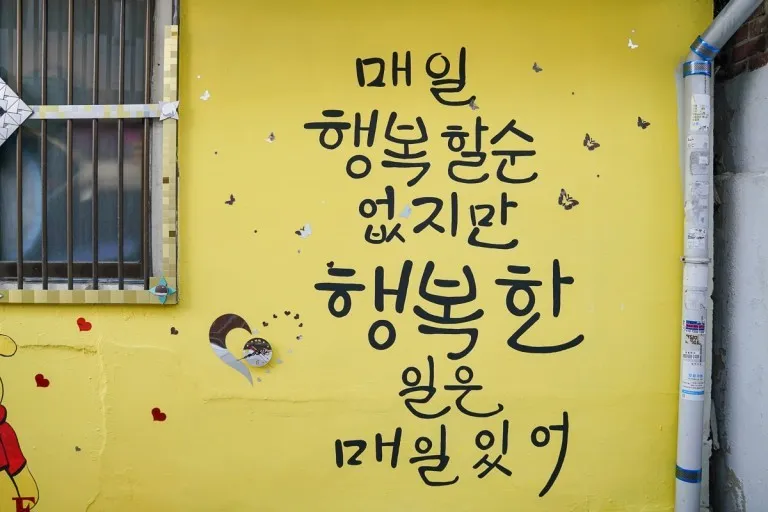 매일
행복할순
없지만
행복한
일은
매일있어
E